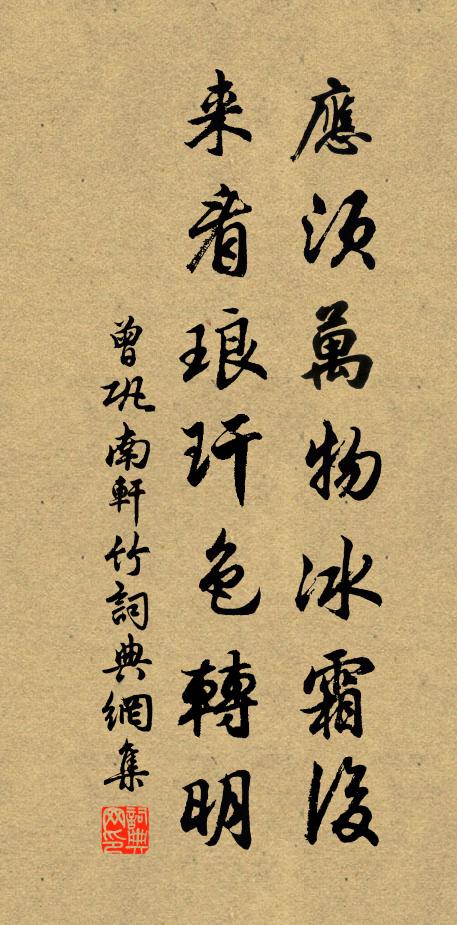 應須萬物冰霜後
来看琅玕色轉明
曾巩南軒竹詞典網集
詞典网印